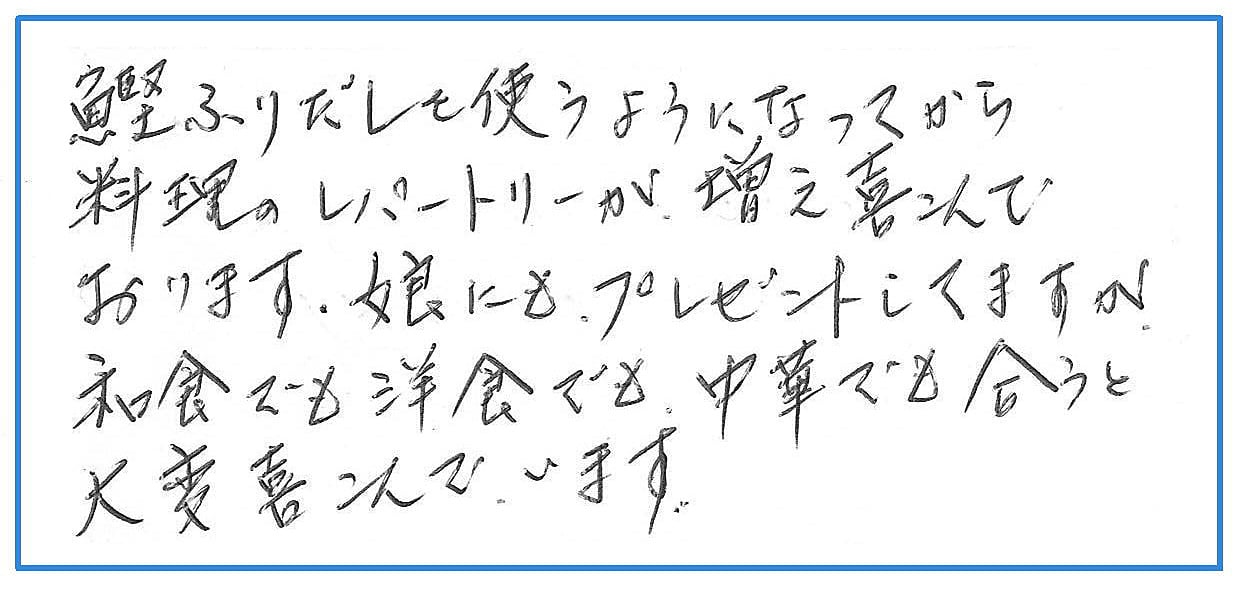 鰹ふりだしを使うようになってから
料理のレパートリーが増え喜んで
おります。娘にもプレゼントしてますが
和食でも洋食でも中華でも合うと
大変喜んでいます。